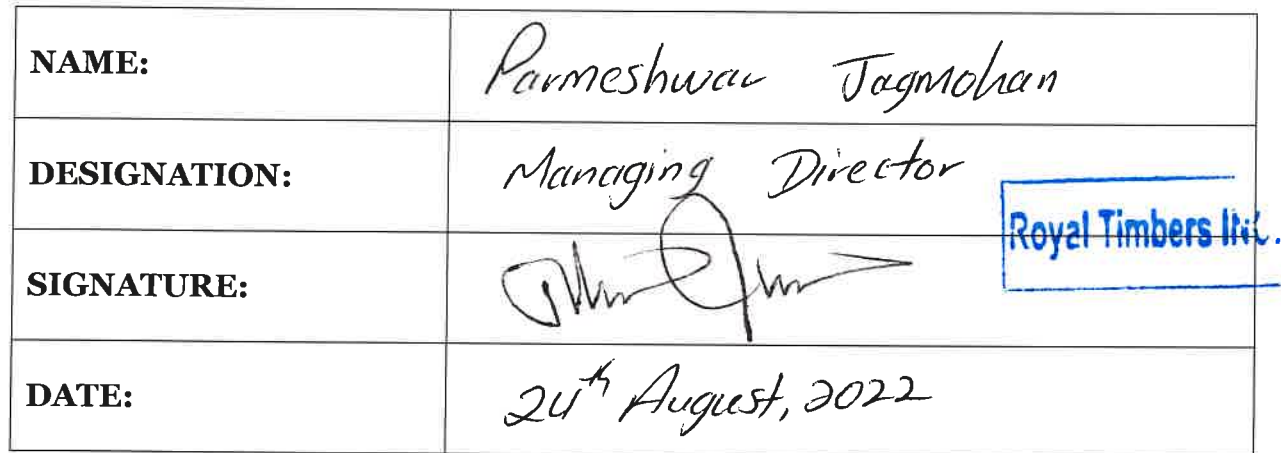 NAME: Parmeshwar Jagmohan
DESIGNATION: Managing Director
Royal Timbers Inc.
SIGNATURE:
DATE: 24th August, 2022